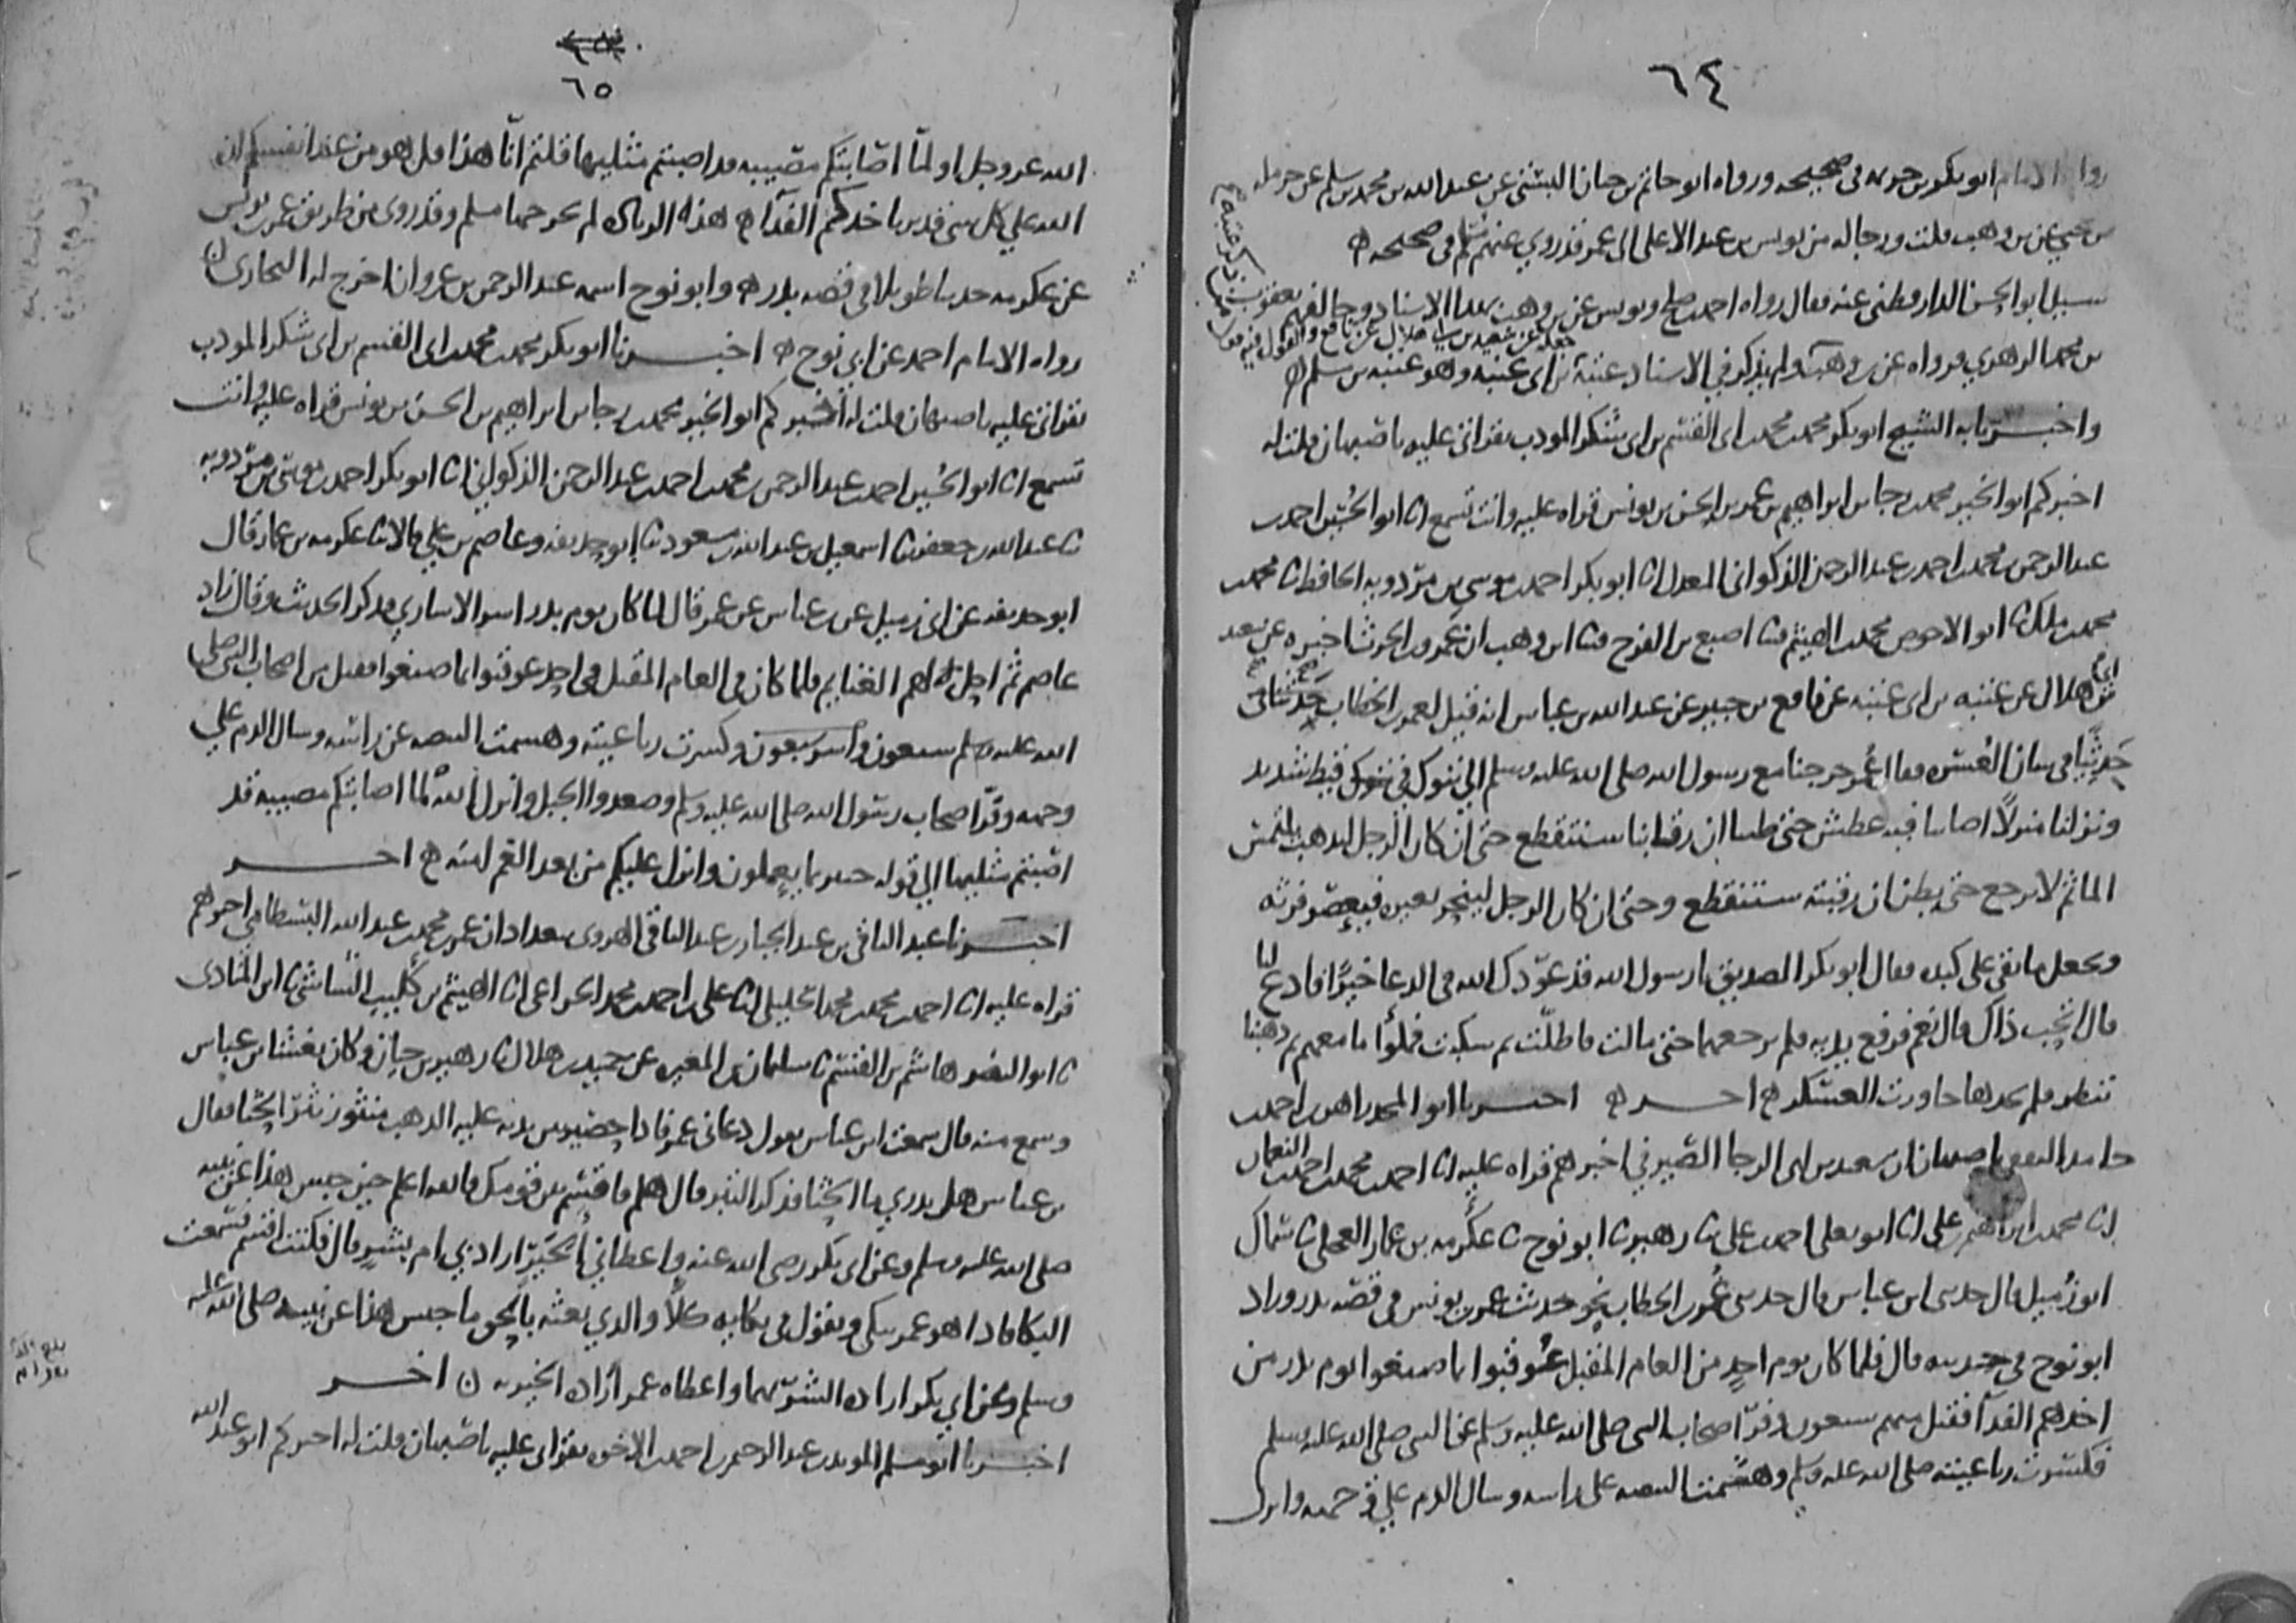 ٦٤
رواه الامام ابو بكر بن خزيمة في صحيحه ورواه ابو حاتم بن حبان البستي عن عبد الله بن محمد بن سلم عن حرملة
بن يحيى عن بن وهب قلت ورجاله من يونس بن عبد الاعلى الى عمر قد روى عنهم مسلم في صحيحه
سيل ابو الحسن الدارقطني عنه فقال رواه احمد بن صالح ويونس عن بن وهب بهذا الاسناد وخالفهم يعقوب
بن محمد الزهري فرواه عن بن وهب ولم يذكر في الاسناد عتبة بن ابي عتبة وهو عتبة بن مسلم
جعله عن سعيد بن ابي هلال عن نافع والقول فيه قول
واخبرنا به الشيخ ابو بكر محمد بن محمد بن ابي القسم بن ابي شكر المودب بقراتي عليه باصبهان قلت له
اخبركم ابو الخير محمد بن رجا بن ابراهيم بن عمر بن الحسن بن يونس قراه عليه وانت تسمع انا ابو الحسين احمد بن
عبد الرحمن بن محمد بن احمد بن عبد الرحمن الذكواني المعدل انا ابو بكر احمد بن موسى بن مردويه الحافظ نا محمد بن
محمد بن ملك نا ابو الاحوص محمد بن الهيثم نا اصبغ بن الفرج نا ابن وهب ان عمرو بن الحرث اخبره عن سعيد
بن ابي هلال عن عتبة بن ابي عتبة عن نافع بن جبير عن عبد الله بن عباس انه قيل لعمر بن الخطاب
حدثنا في شان العسرة فقال عمر خرجنا مع رسول الله صلى الله عليه وسلم الى تبوك في قيظ شديد
ونزلنا منزلا اصابنا فيه عطش حتى ظننا ان رقابنا ستنقطع حتى ان كان الرجل ليذهب يلتمس
الما ثم لا يرجع حتى يظن ان رقبته ستنقطع وحتى ان كان الرجل لينحر بعيره فيعصر فرثه
ويجعل ما بقي على كبده فقال ابو بكر الصديق يا رسول الله قد عودك الله في الدعا خيرا فادع لنا
قال اتحب ذاك قال نعم فرفع يديه فلم يرجعهما حتى مالت فاطلت ثم سكبت فملؤا ما معهم ثم ذهبنا
ننظر فلم نجدها جاوزت العسكر اخر اخبرنا ابو المجد زاهر بن احمد بن
حامد الثقفي باصبهان ان سعيد بن ابي الرجا الصيرفي اخبرهم قراه عليه انا احمد بن محمد بن احمد بن النعمان
انا محمد بن ابراهيم بن علي انا ابو يعلى احمد بن علي نا زهير نا ابو نوح نا عكرمة بن عمار العجلي نا سماك
ابو زميل قال حدثني ابن عباس قال حدثني عمر بن الخطاب نحو حديث عمر بن يونس في قصة بدر وزاد
ابو نوح في حديثه قال فلما كان يوم احد من العام المقبل عوقبوا بما صنعوا يوم بدر من
اخذهم الفدآ فقتل منهم سبعون وفر اصحاب النبي صلى الله عليه وسلم عن النبي صلى الله عليه وسلم
فكسرت رباعيته صلى الله عليه وسلم وهشمت البيضة على راسه وسال الدم على وجهه وانزل
٦٥
الله عز وجل اولما اصابتكم مصيبة قد اصبتم مثليها قلتم انا هذا قل هو من عند انفسكم ان
الله على كل شي قدير باخذكم الفدآ هذه الزيادة لم يخرجها مسلم وقد روى من طريق عمر بن يونس
عن عكرمة حديثا طويلا في قصة بدر وابو نوح اسمه عبد الرحمن بن غزوان اخرج له البخاري
رواه الامام احمد عن ابي نوح اخبرنا ابو بكر محمد بن محمد بن ابي القسم بن ابي شكر المودب
بقراتي عليه باصبهان قلت له اخبركم ابو الخير محمد بن رجا بن ابراهيم بن الحسن بن يونس قراه عليه وانت
تسمع انا ابو الحسين احمد بن عبد الرحمن بن محمد بن احمد بن عبد الرحمن الذكواني انا ابو بكر احمد بن موسى بن مردويه
نا عبد الله بن جعفر نا اسمعيل بن عبد الله بن مسعود نا ابو حذيفة وعاصم بن علي قالا نا عكرمة بن عمار قال
ابو حذيفة عن ابي زميل عن بن عباس عن عمر قال لما كان يوم بدر اسر الاسارى فذكر الحديث وقال زاد
عاصم ثم احل الله لهم الغنايم فلما كان في العام المقبل في احد عوقبوا بما صنعوا فقتل من اصحاب النبي صلى
الله عليه وسلم سبعون واسر سبعون وكسرت رباعيته وهشمت البيضة عن راسه وسال الدم على
وجهه وفر اصحاب رسول الله صلى الله عليه وسلم وصعدوا الجبل وانزل الله لما اصابتكم مصيبة قد
اصبتم مثليها الى قوله خبير بما يعملون وانزل عليكم من بعد الغم امنه اخر
اخبرنا عبد الباقي بن عبد الجبار بن عبد الباقي الهروي ببغداد ان عمر بن محمد بن عبد الله البسطامي اخبرهم
قراه عليه انا احمد بن محمد بن محمد الخليلي انا علي بن احمد بن محمد الخزاعي انا الهيثم بن كليب الشاشي نا ابن المنادى
نا ابو النضر هاشم بن القسم نا سليمان بن المغيرة عن حميد بن هلال نا زهير بن حيان وكان يغشى ابن عباس
وسمع منه قال سمعت ابن عباس يقول دعاني عمر فاذا حصير بين يديه عليه الذهب منثور نثر الحثا فقال
بن عباس هل يدري ما الحثا فذكر التبر قال هلم فاقسم بين قومك فالله اعلم حين حبس هذا عن نبيه
صلى الله عليه وسلم وعن ابي بكر رضي الله عنه واعطاني الخير اراد بي ام بشر قال فكنت اقسم فسمعت
البكا فاذا هو عمر يبكي ويقول في بكايه كلا والذي بعثه بالحق ما حبس هذا عن نبيه صلى الله عليه
وسلم وعن ابي بكر ارادة الشر بهما واعطاه عمر ارادة الخير به اخر
اخبرنا ابو مسلم المويد بن عبد الرحمن بن احمد بن الاخوة بقراتي عليه باصبهان قلت له اخبركم ابو عبد الله